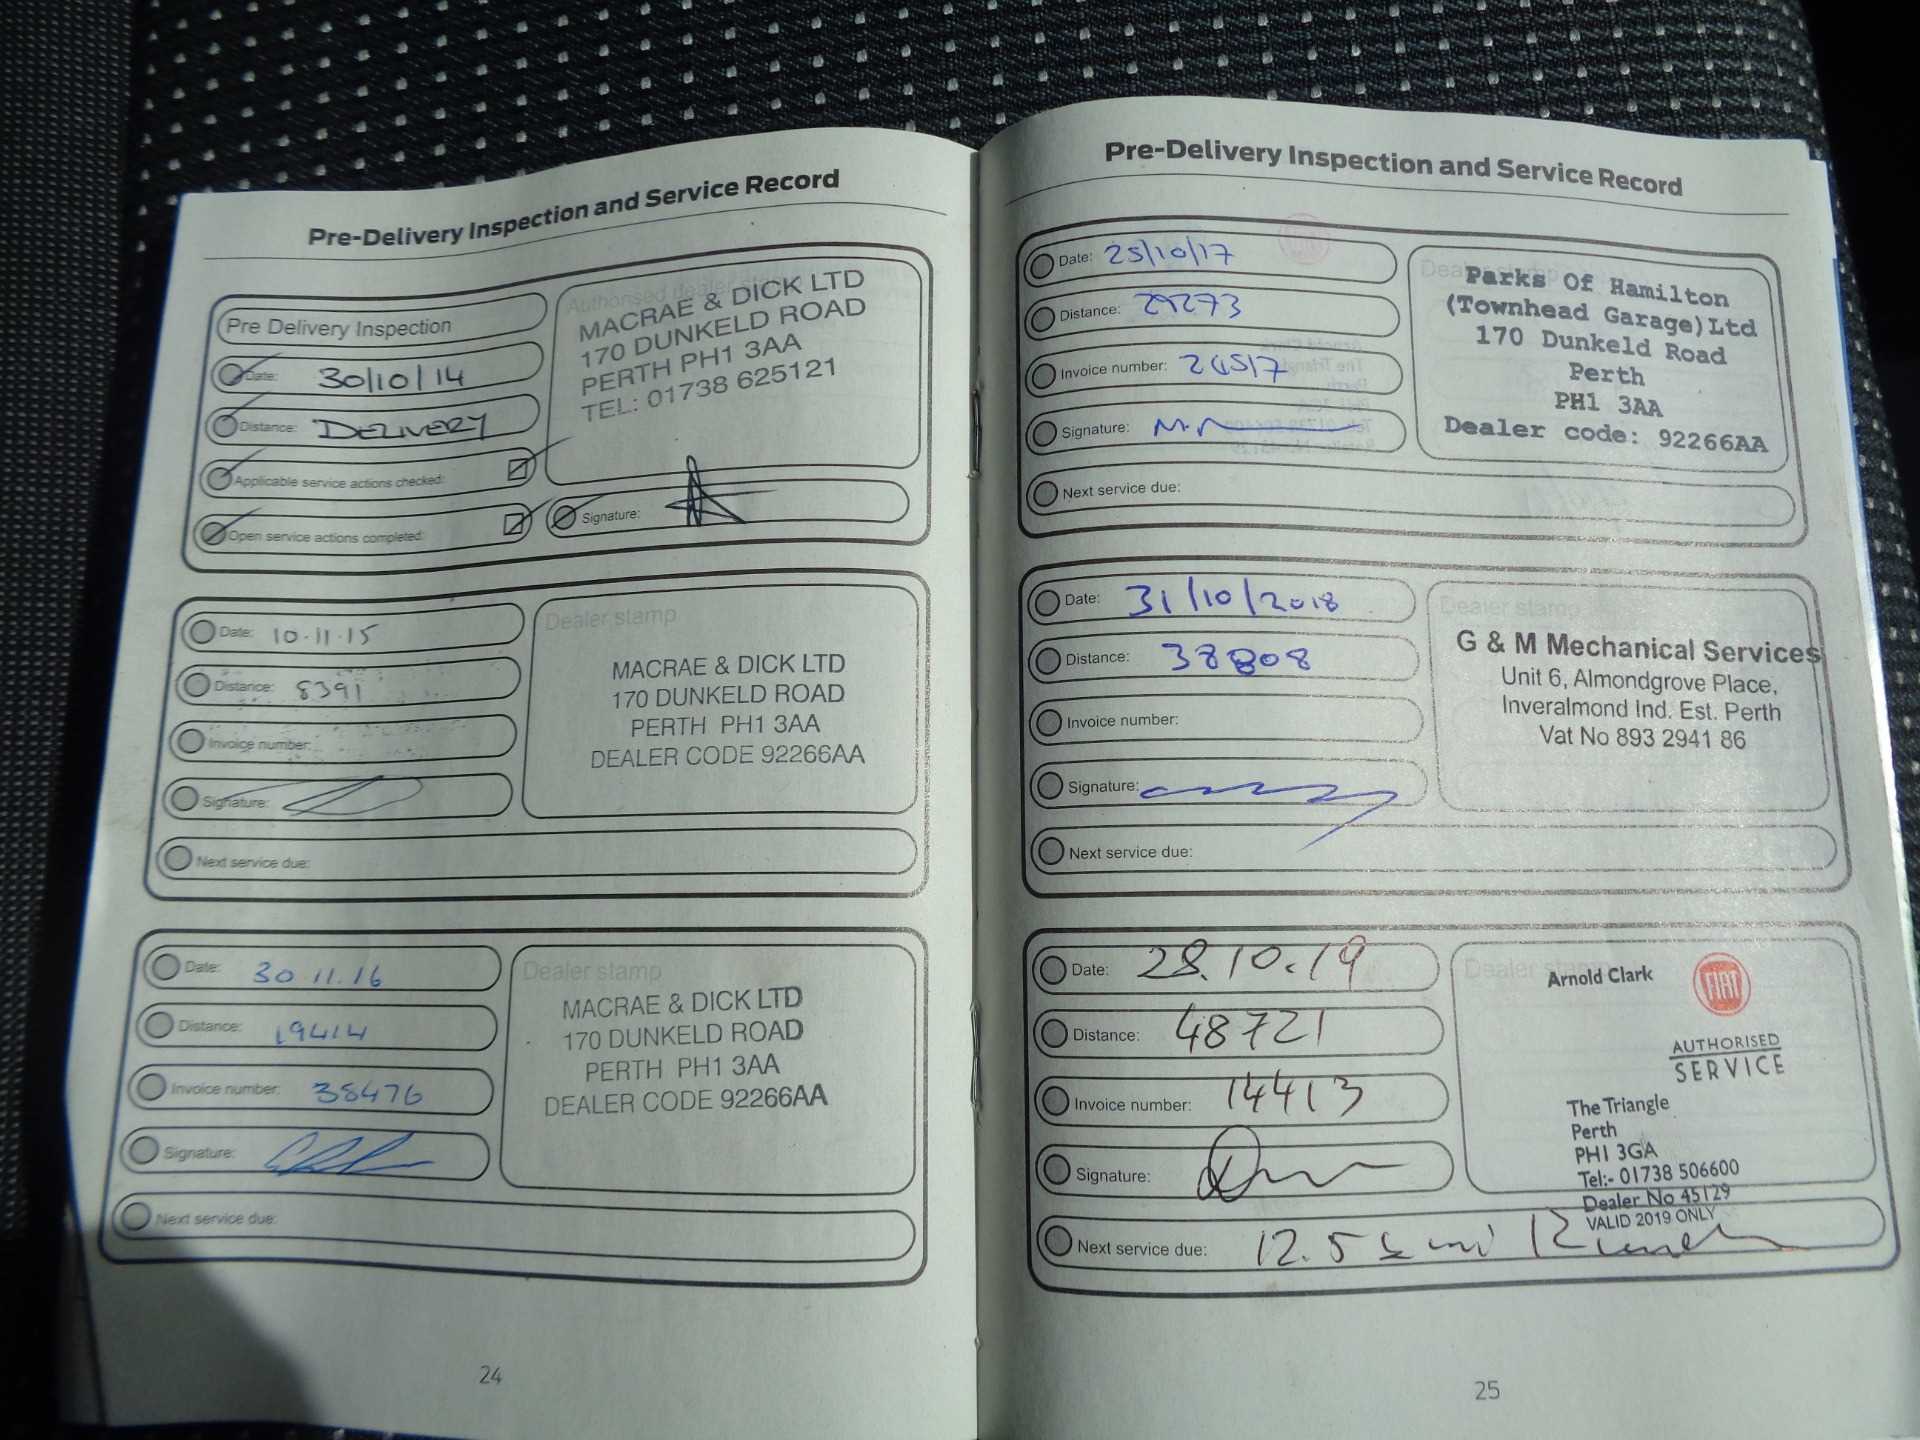 Pre-Delivery Inspection and Service Record
Pre Delivery Inspection
Date: 30/10/14
Distance: DELIVERY
Applicable service actions checked:
Open service actions completed:
Authorised dealer stamp
MACRAE & DICK LTD
170 DUNKELD ROAD
PERTH PH1 3AA
TEL: 01738 625121
Signature:
Date: 10.11.15
Distance: 8391
Invoice number:
Signature:
Next service due:
Dealer stamp
MACRAE & DICK LTD
170 DUNKELD ROAD
PERTH PH1 3AA
DEALER CODE 92266AA
Date: 30 11.16
Distance: 19414
Invoice number: 38476
Signature:
Next service due:
Dealer stamp
MACRAE & DICK LTD
170 DUNKELD ROAD
PERTH PH1 3AA
DEALER CODE 92266AA
24
Pre-Delivery Inspection and Service Record
Date: 25/10/17
Distance: 29273
Invoice number: 24517
Signature:
Next service due:
Dealer stamp
Parks Of Hamilton
(Townhead Garage)Ltd
170 Dunkeld Road
Perth
PH1 3AA
Dealer code: 92266AA
Date: 31/10/2018
Distance: 38808
Invoice number:
Signature:
Next service due:
Dealer stamp
G & M Mechanical Services
Unit 6, Almondgrove Place,
Inveralmond Ind. Est. Perth
Vat No 893 2941 86
Date: 28.10.19
Distance: 48721
Invoice number: 14413
Signature:
Next service due: 12.5
Dealer stamp
Arnold Clark
FIAT
AUTHORISED
SERVICE
The Triangle
Perth
PH1 3GA
Tel:- 01738 506600
Dealer No 45129
VALID 2019 ONLY
25